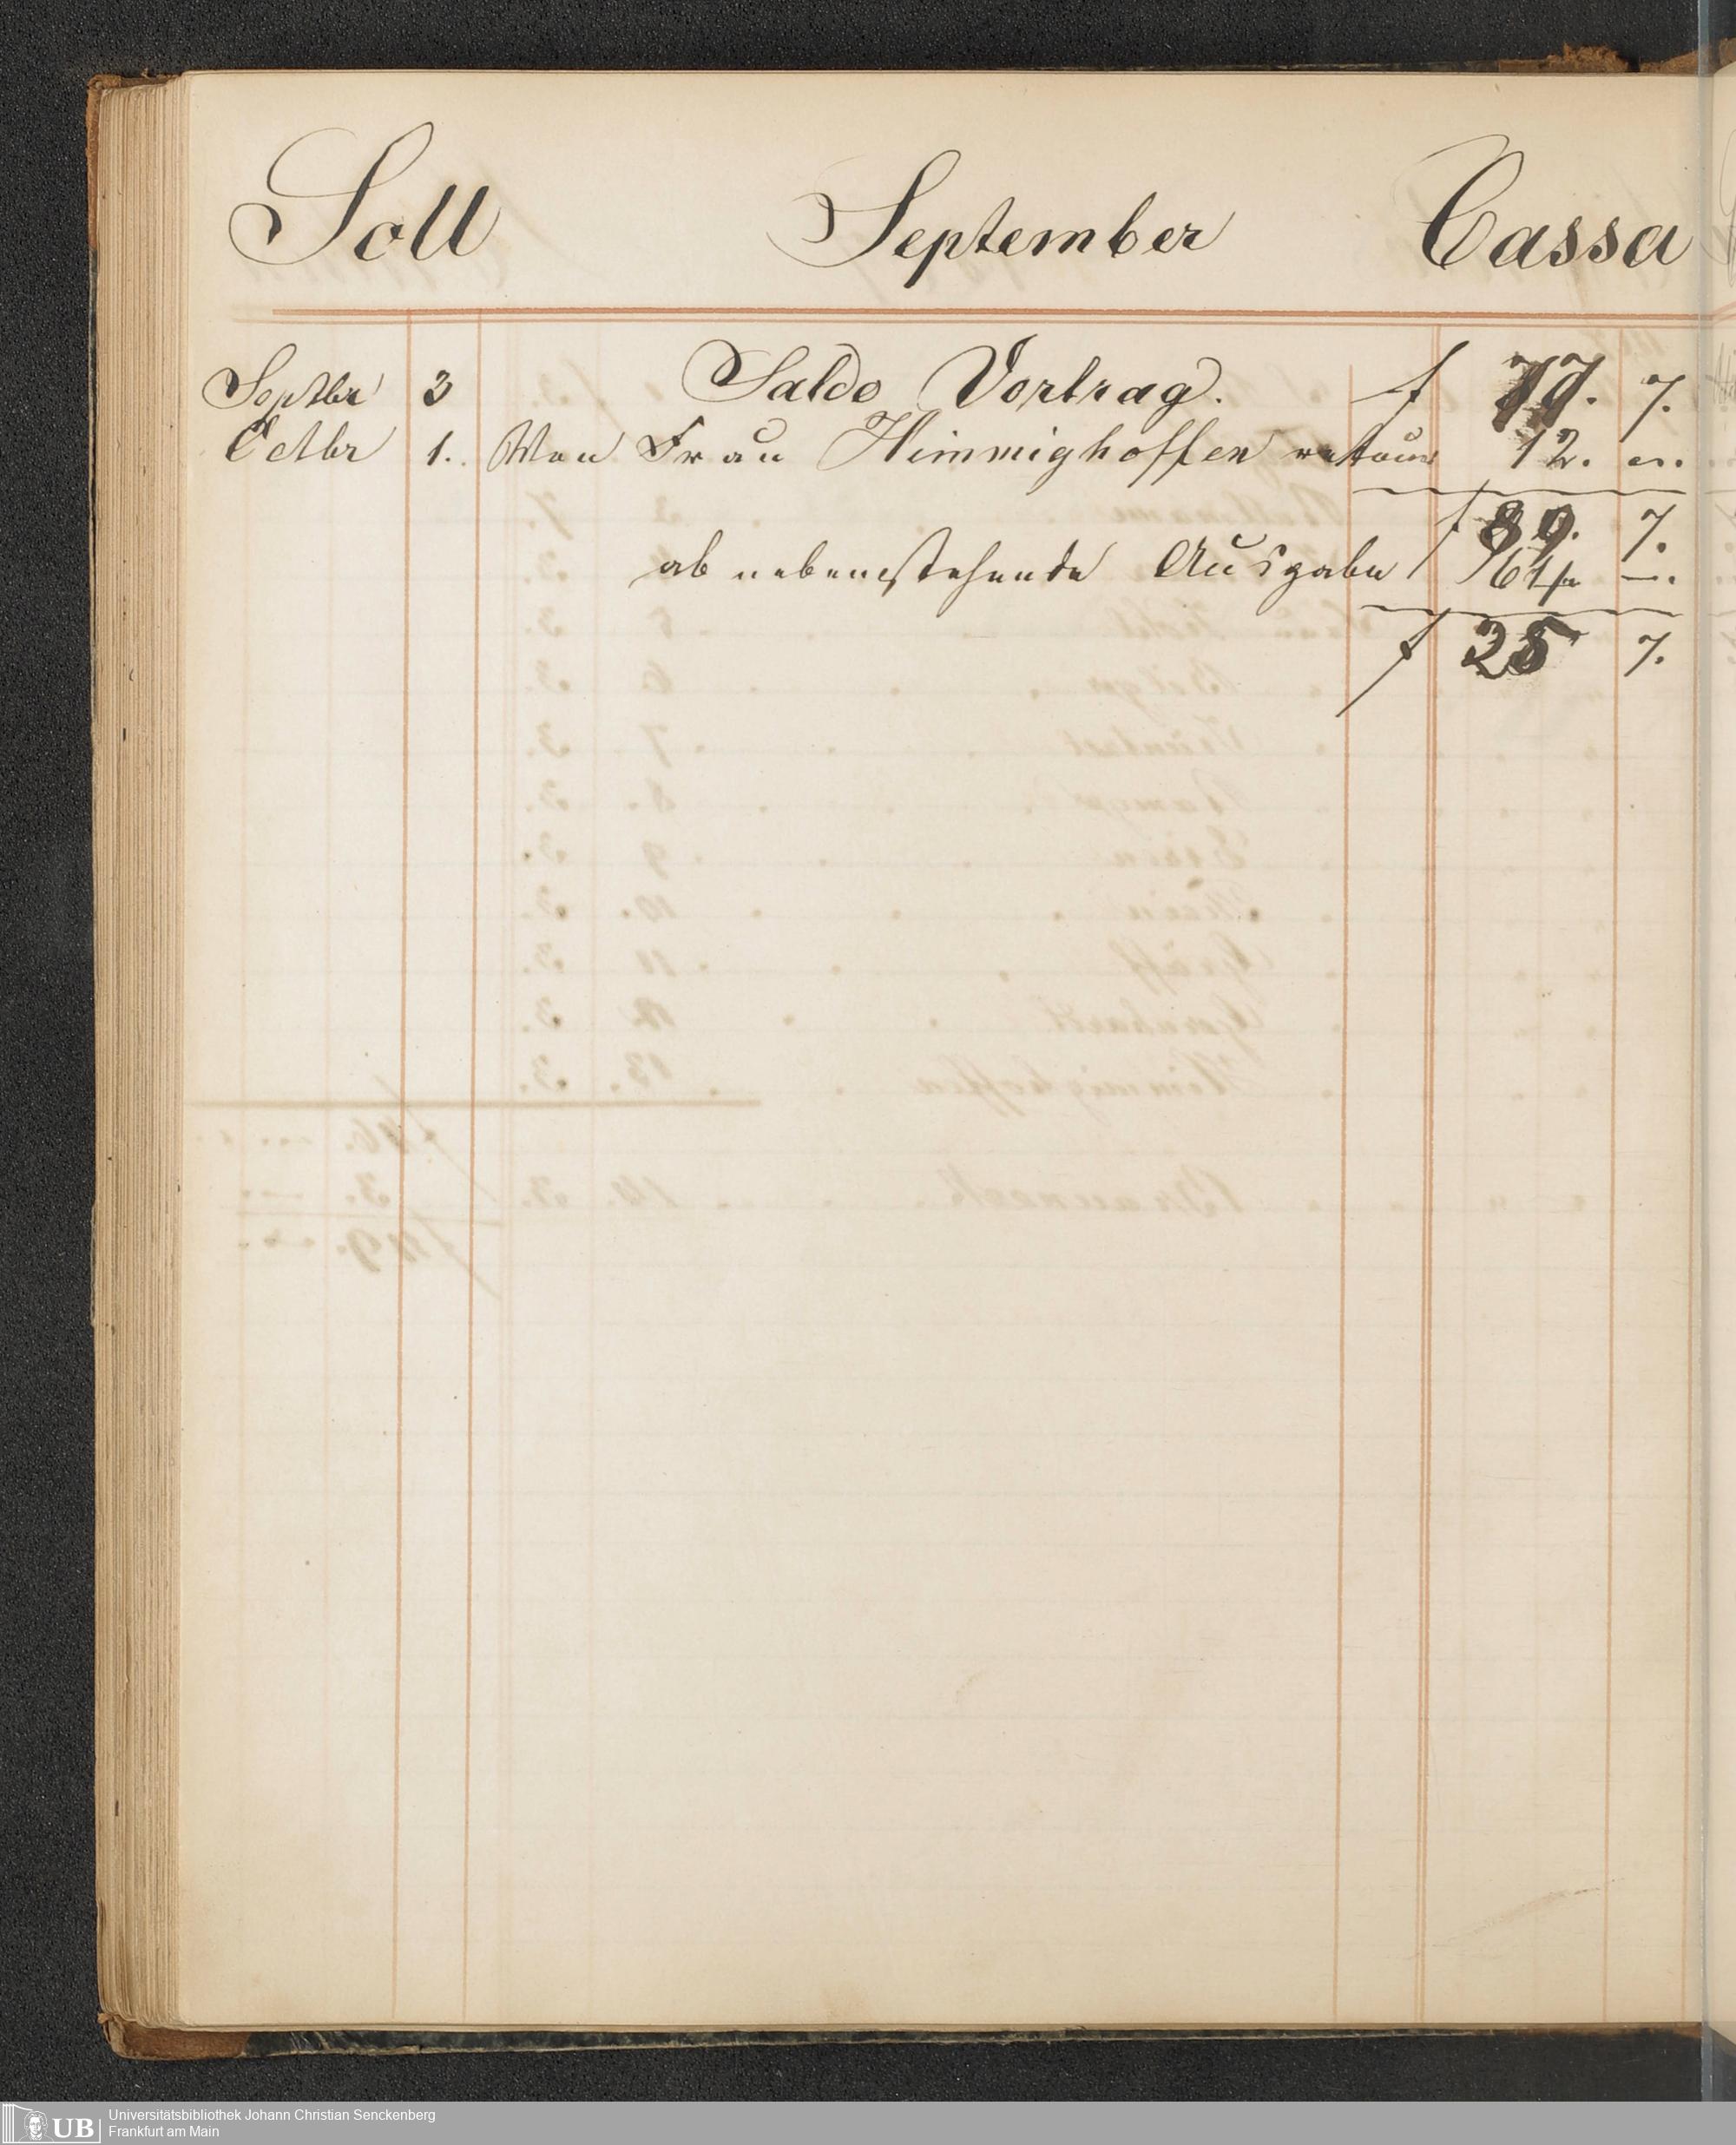 Soll September Cassa
Septbr 3 Saldo Vortrag. f 77. 7.
Octbr 1. Von Frau Himmighoffen retour 12. „.
f 89. 7.
ab nebenstehende Ausgabe f 64 —.
f 25 7.
Universitätsbibliothek Johann Christian Senckenberg
Frankfurt am Main
UB